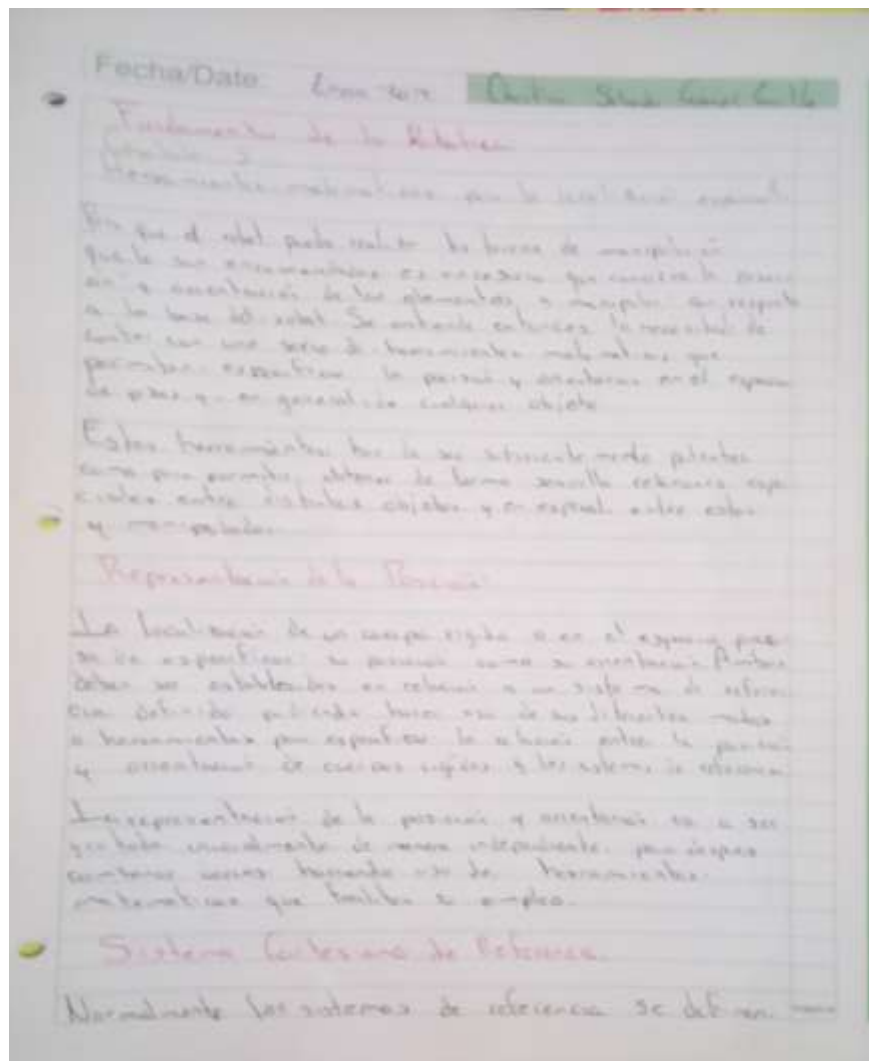 Fecha/Date
Fundamentos de la Robotica
Herramientas matematicas para la localizacion espacial
Para que el robot pueda realizar las tareas de manipulacion
que le son encomendadas es necesario que conozca la posici
on y orientacion de los elementos a manipular con respecto
a la base del robot. Se entiende entonces la necesidad de
contar con una serie de herramientas matematicas que
permitan especificar la posicion y orientacion en el espacio
de piezas y en general de cualquier objeto
Estas herramientas han de ser suficientemente potentes
como para permitir obtener de forma sencilla relaciones espa
ciales entre distintos objetos y en especial entre estos
y manipulador
Representacion de la Posicion
La localizacion de un cuerpo rigido en el espacio
especificar su posicion como su orientacion. Ambas
deben ser establecidas en relacion a un sistema de referen
cia definido pudiendo hacer uso de los diferentes modos
o herramientas para especificar la relacion entre la posicion
y orientacion de cuerpos rigidos y los sistemas de referencia
La representacion de la posicion y orientacion va a ser
inicialmente de manera independiente, para despues
haciendo uso de herramientas
matematicas que faciliten su empleo.
Sistema Cartesiano de Referencia
Normalmente los sistemas de referencia se definen